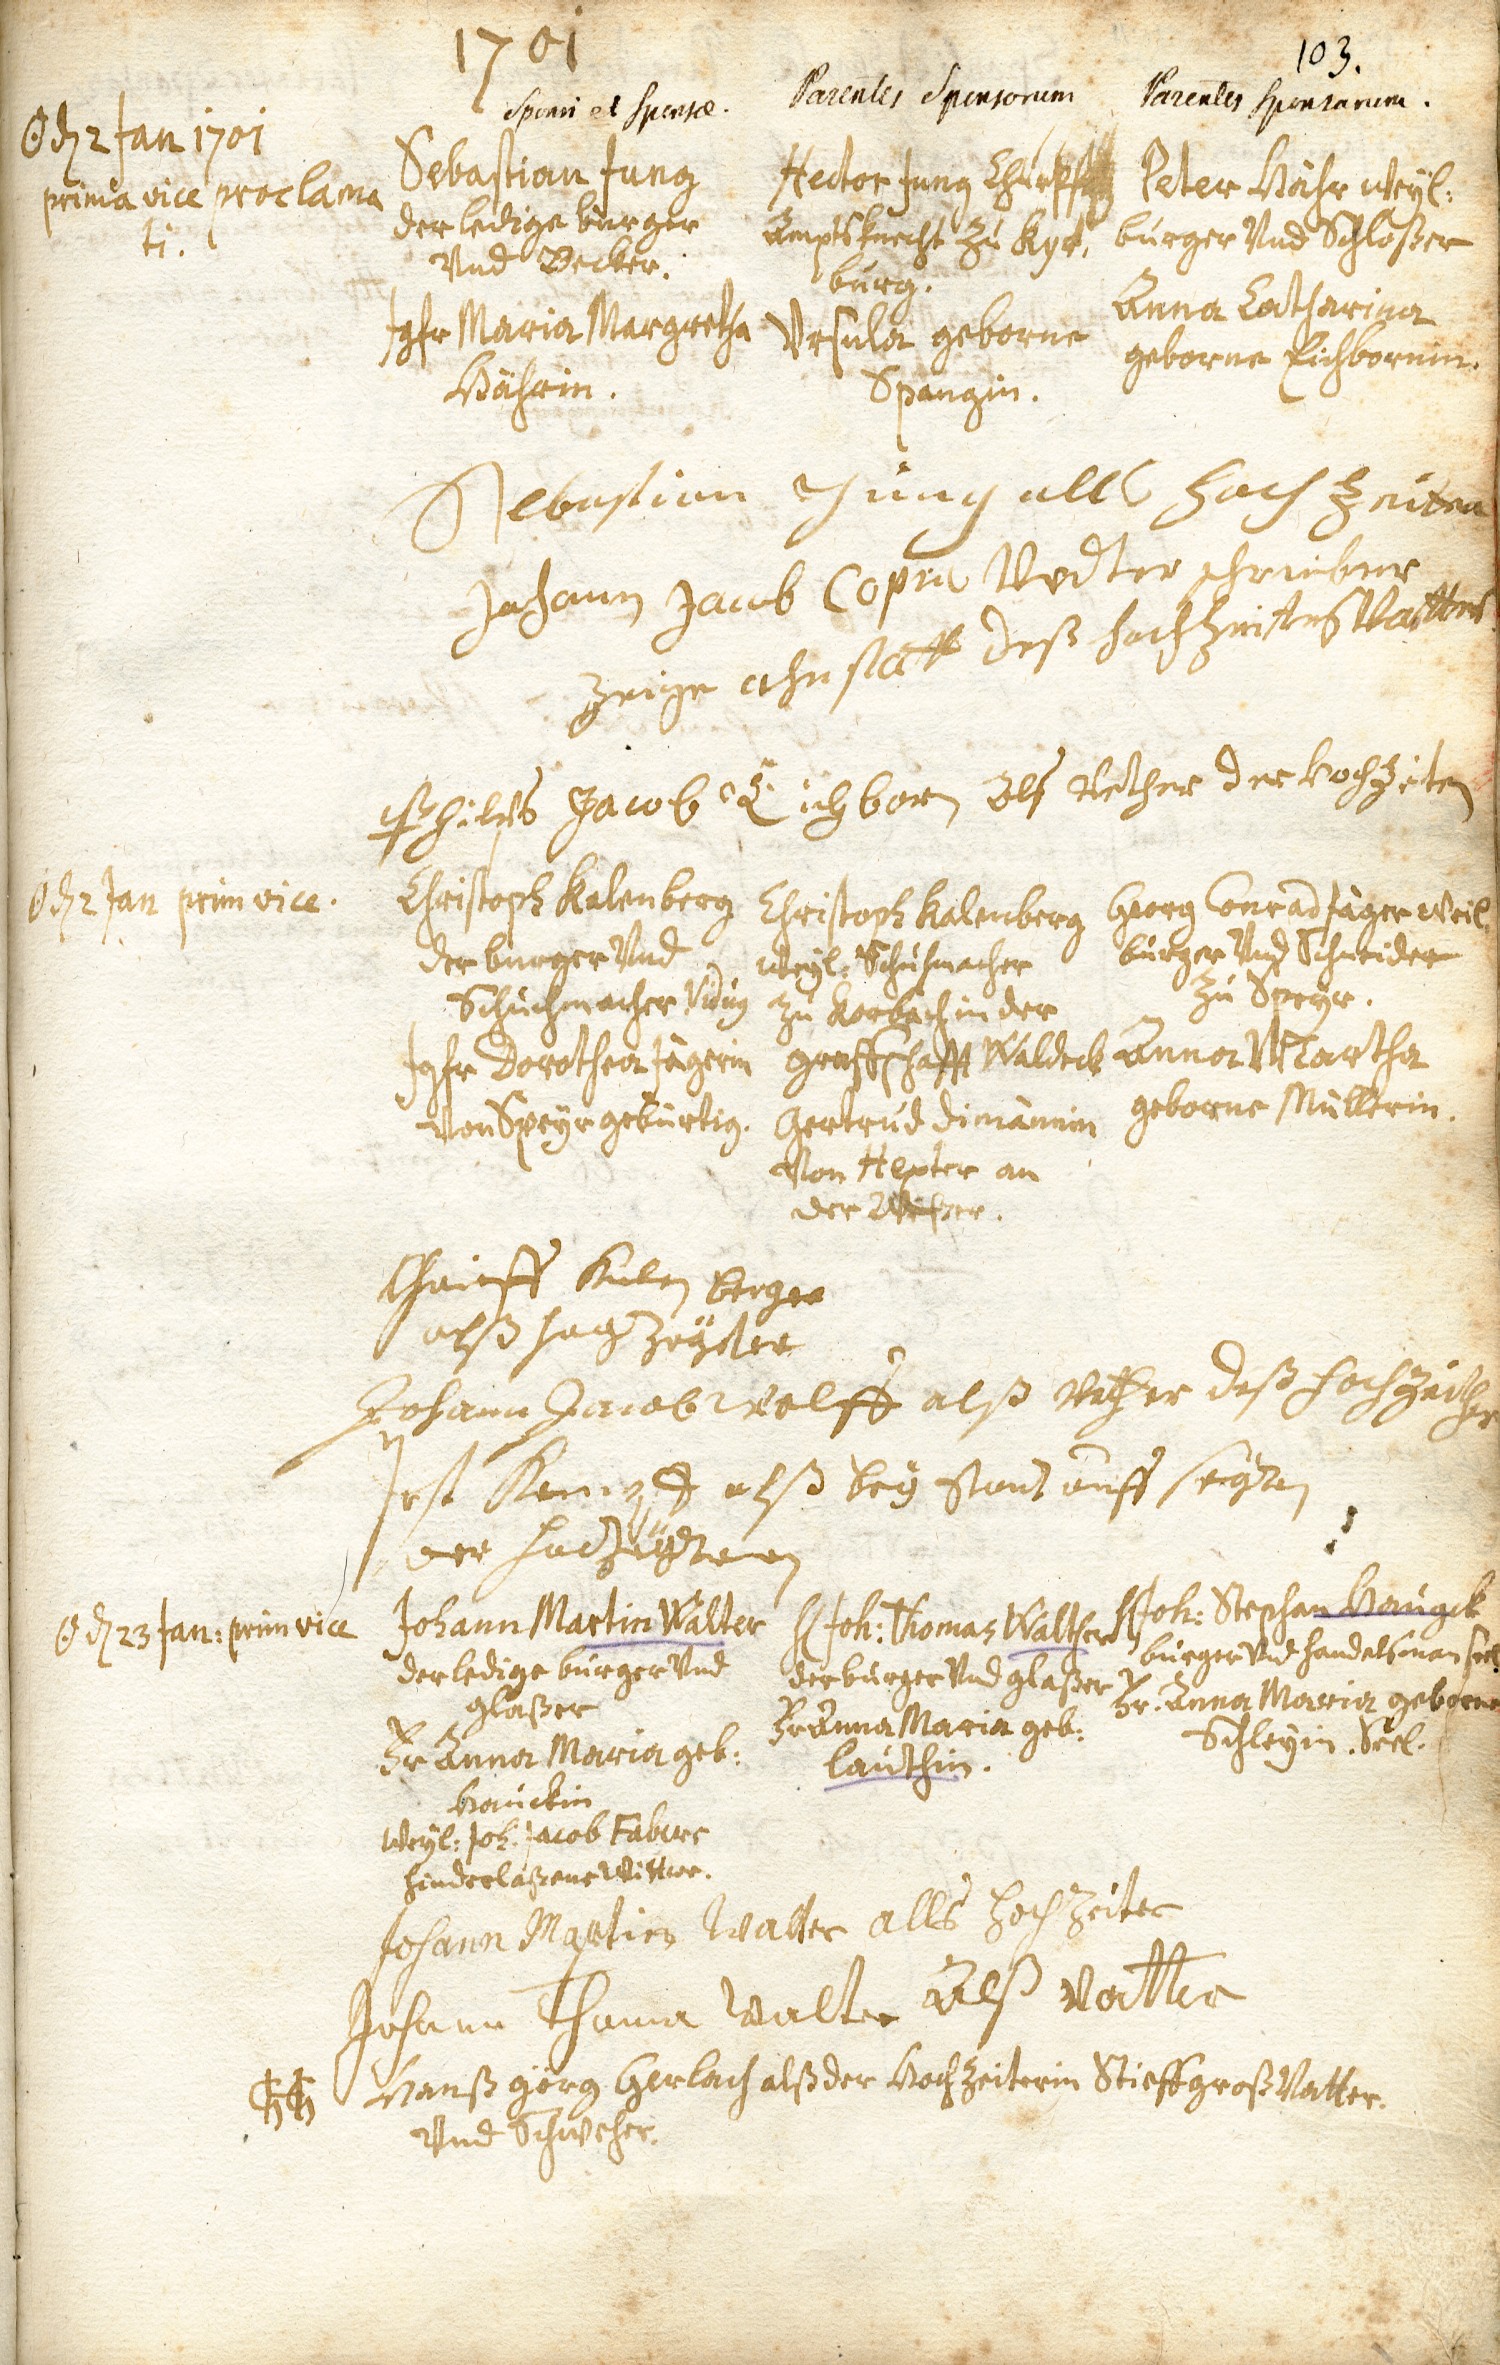 1701
103.
Sponsi et Sponsæ.
Parentes Sponsorum
Parentes Sponsarum.
☉ d. 2 Jan 1701
prima vice proclama
ti.
Sebastian Jung
der ledige burger
Vnd Becker.
Jgfr Maria Margretha
Hährin.
Hector Jung Churpf
Amptsknecht zu Kyr,
burg.
Vrsula geborne
Spangin.
Peter Hähr weyl:
burger Vnd Schloßer
Anna Catharina
geborne Eichbornin.
Sebastian Jung alls Hoch Zeiter
Johann Jacob
Zeige ahnstatt deß hochzeiters Vatters
Philips Jacob Eichborn Als Vether der hochZeiterin
☉ d. 2 Jan prim vice.
Christoph Kalenberg
der burger Vnd
Schuhmacher
Jgfr Dorothea Jägerin
Von Speyr gebürtig.
Christoph Kalenberg
weyl: Schuhmacher
zu Korbach in der
Graffschafft Waldeck
Gertrud Dimännin
Von Hexter an
der Weßer.
Georg Conrad Jäger weil.
burger Vnd Schneider
zu Speyr.
Anna Martha
geborne Müllerin.
Christoff Kalenberger
alß hochZeyter
Johann Jacob Wolff alß Vether deß hochZeiters
alß bey stant auff seyten
der
☉ d. 23 Jan: prim vice
Johann Martin Walter
der ledige burger Vnd
Glaßer
Fr Anna Maria geb:
Hauckin
Weyl: Joh. Jacob Fabers
hinderlaßene Wittwe.
H Joh: Thomas Walther
der burger Vnd Glaßer
Fr Anna Maria geb:
Lauthin.
H Joh: Stephan Haugck
burger Vnd handelsman seel.
Fr. Anna Maria geborne
Schleyin. Seel.
Johann Martin Walter alls HochZeiter
Johann Thoma Walter Alß Vatter
Hanß Görg Gerlach alß der HochZeiterin StieffgroßVatter.
Vnd Schweher.